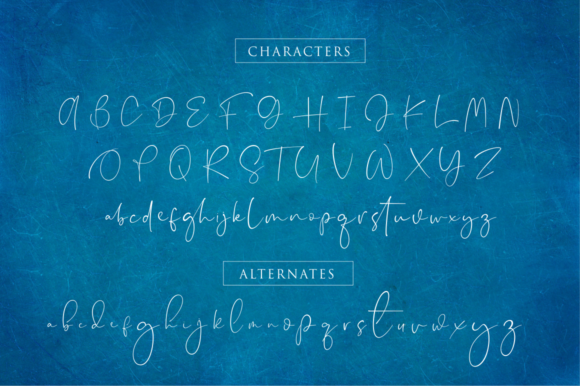 CHARACTERS
A B C D E F G H I J K L M N
O P Q R S T U V W X Y Z
a b c d e f g h i j k l m n o p q r s t u v w x y z
ALTERNATES
a b c d e f g h i j k l m n o p q r s t u v w x y z